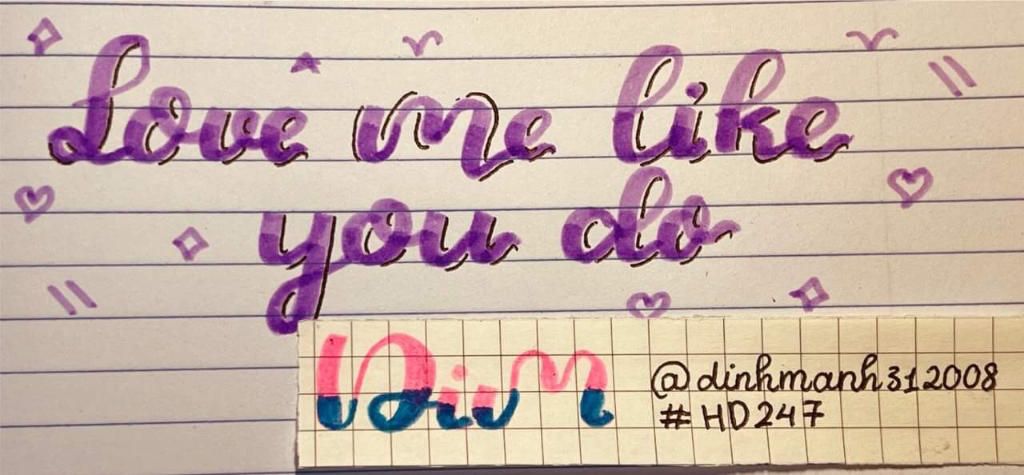 Love me like
you do
@dinhmanh312008
#HD247